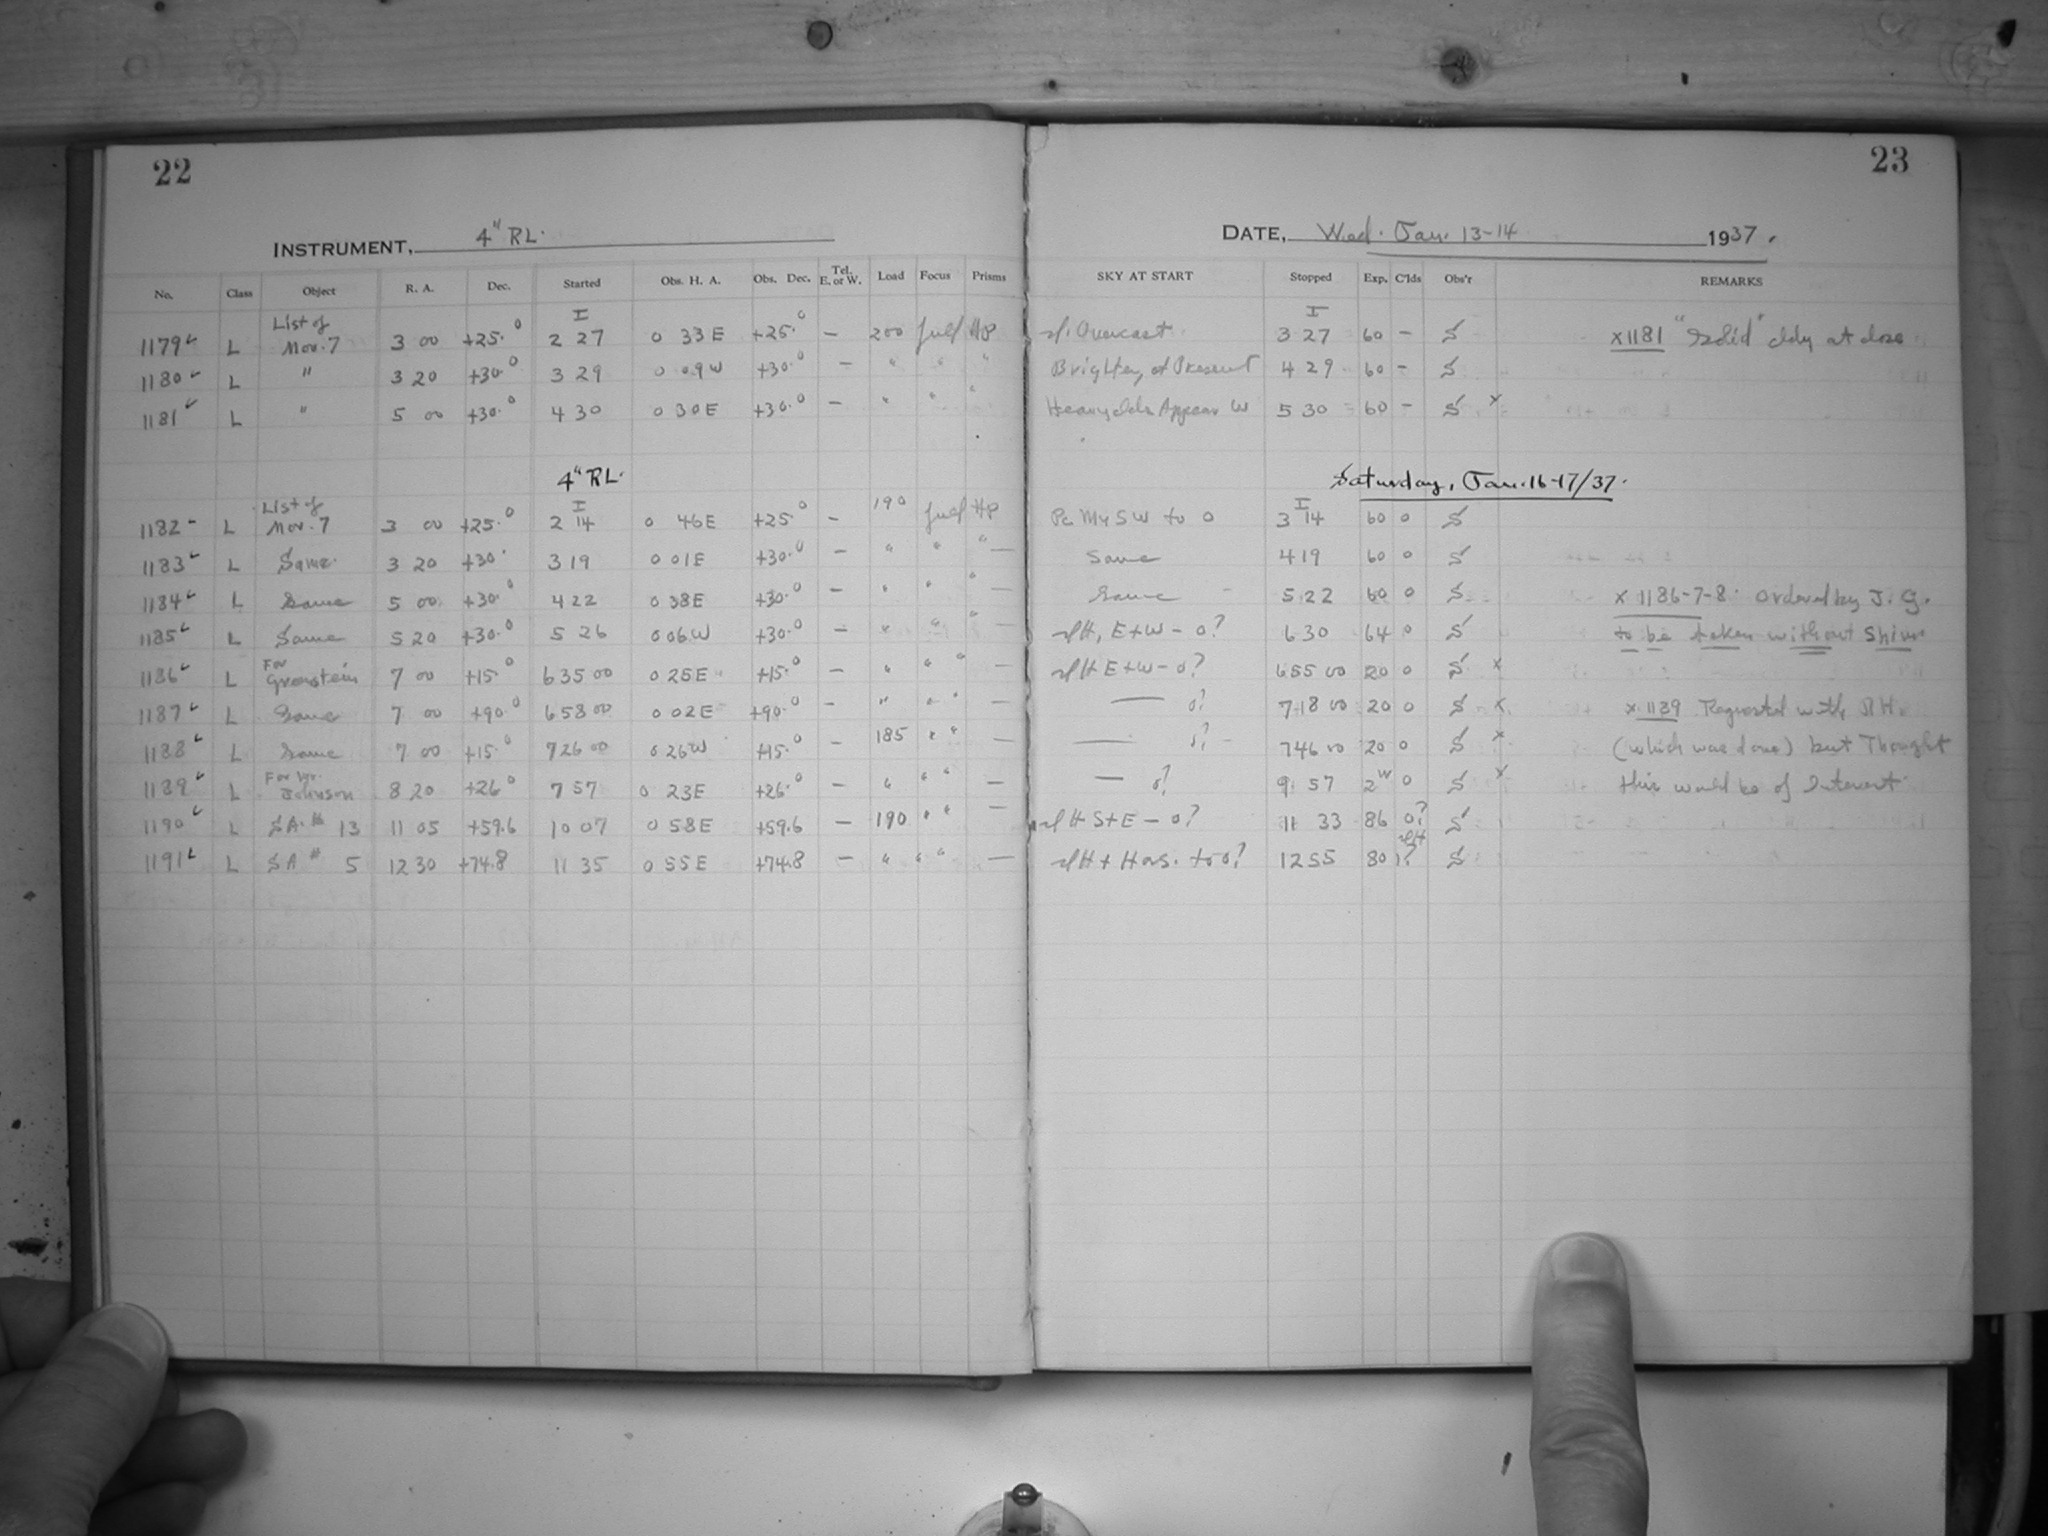 22
23
INSTRUMENT, 4" RL.
DATE, Wed. Jan. 13-14 1937.
No. Class Object R. A. Dec. Started Obs. H. A. Obs. Dec. Tel. E. or W. Load Focus Prisms SKY AT START Stopped Exp. C'lds Obs'r REMARKS
1179 L List of Nov. 7 3 00 +25.0 2 27 0 33 E +25.0 — 200 Overcast 3 27 60 — S x1181 "Solid" cldy at close
1180 L " 3 20 +30.0 3 29 0 09 W +30.0 — " " " at Present 4 29 60 — S
1181 L " 5 00 +30.0 4 30 0 30 E +30.0 — " " " Heavy clds Appear W 5 30 60 — S x
4" RL. Saturday, Jan. 16-17/37.
1182 L List of Nov. 7 3 00 +25.0 2 14 0 46 E +25.0 — 190 SW to 0 3 14 60 0 S
1183 L Same 3 20 +30. 3 19 0 01 E +30.0 — " " " — Same 4 19 60 0 S
1184 L Same 5 00 +30.0 4 22 0 38 E +30.0 — " " " Same 5 22 60 0 S x 1186-7-8. Ordered by J. G.
1185 L Same 5 20 +30.0 5 26 0 06 W +30.0 — " " " E+W — 0? 6 30 64 0 S to be taken without
1186 L For 7 00 +15.0 6 35 00 0 25 E +15.0 — " " " — E+W — 0? 6 55 00 20 0 S x
1187 L Same 7 00 +90.0 6 58 00 0 02 E +90.0 — " " " — — 0? 7 18 00 20 0 S x x 1189 Requested with
1188 L Same 7 00 +15.0 7 26 00 0 26 W +15.0 — 185 " " — — 0? 7 46 00 20 0 S x (which was done) but Thought
1189 L For Mr. Johnson 8 20 +26.0 7 57 0 23 E +26.0 — " " " — — 0? 9 57 2 W 0 S x this would be of Interest
1190 L SA # 13 11 05 +59.6 10 07 0 58 E +59.6 — 190 " " — S+E — 0? 11 33 86 0? S
1191 L SA # 5 12 30 +74.8 11 35 0 55 E +74.8 — " " " — to 0? 12 55 80 1? S